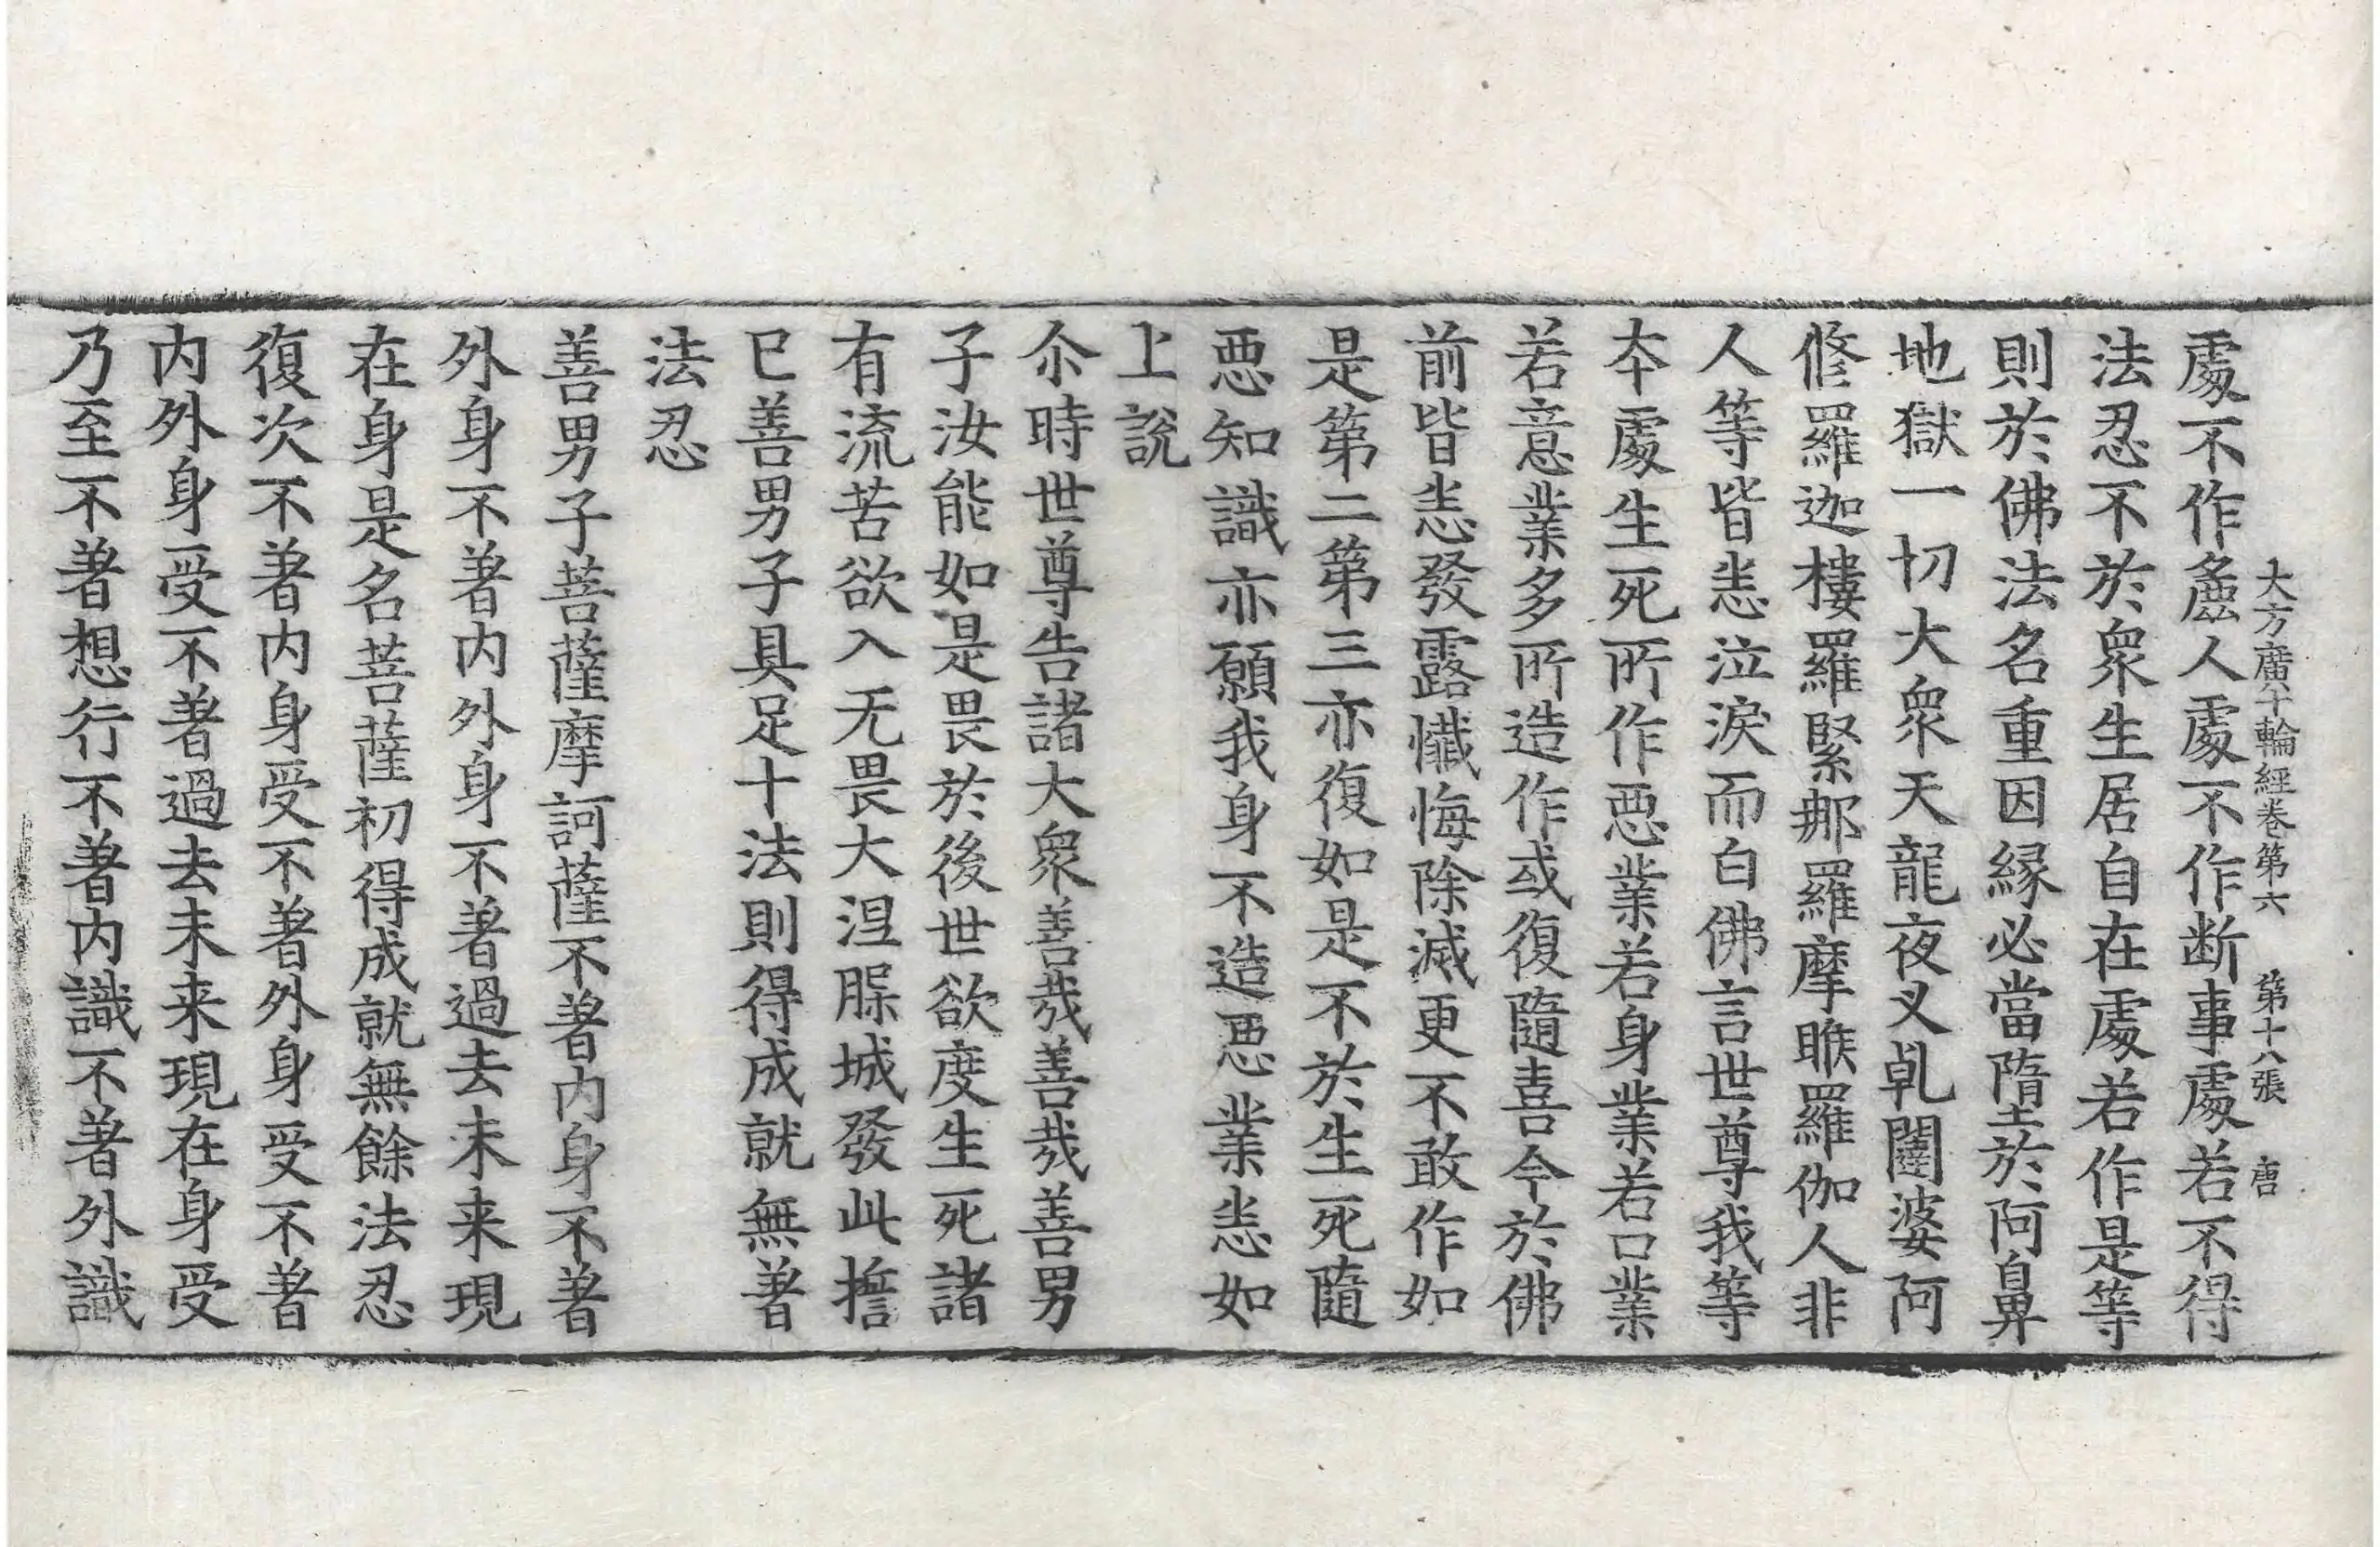 大方廣十輪經卷第六　第十八張　唐
處不作麁人處不作断事處若不得
法忍不於衆生居自在處若作是等
則於佛法名重因緣必當墮於阿鼻
地獄一切大衆天龍夜叉乹闥婆阿
修羅迦樓羅緊那羅摩睺羅伽人非
人等皆悲泣淚而白佛言世尊我等
夲處生死所作惡業若身業若口業
若意業多所造作或復隨喜今於佛
前皆悉發露懺悔除滅更不敢作如
是第二第三亦復如是不於生死隨
惡知識亦願我身不造惡業悉如
上說
尒時世尊告諸大衆善哉善哉善男
子汝能如是畏於後世欲度生死諸
有流苦欲入无畏大涅槃城發此擔
已善男子具足十法則得成就無著
法忍
善男子菩薩摩訶薩不著内身不著
外身不著内外身不著過去未来現
在身是名菩薩初得成就無餘法忍
復次不著内身受不著外身受不著
内外身受不著過去未来現在身受
乃至不著想行不著内識不著外識